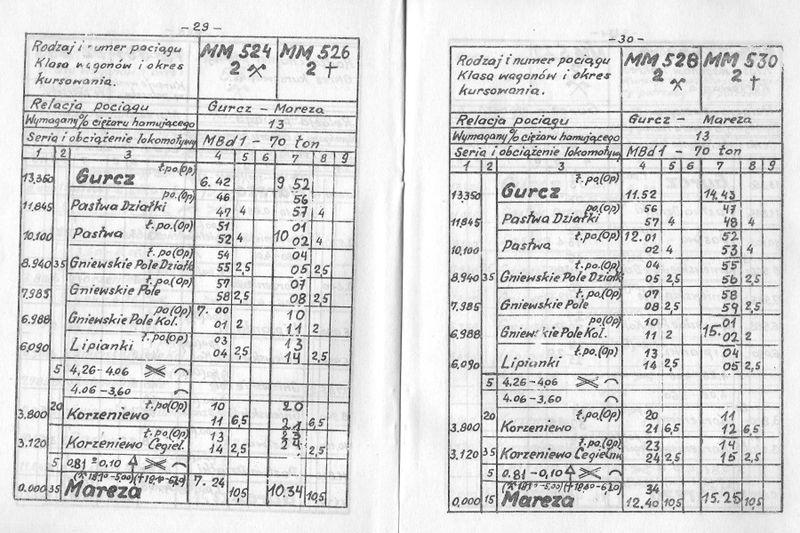 - 29 -
Rodzaj i numer pociągu
Klasa wagonów i okres
kursowania.
MM 524 MM 526
2 ⚒ 2 †
Relacja pociągu Gurcz - Mareza
Wymagany % ciężaru hamującego 13
Seria i obciążenie lokomotywy MBd1 - 70 ton
1 2 3 4 5 6 7 8 9
t.po(Op)
13,350 Gurcz 6.42 9 52
po.(Op) 46 56
11,845 Pastwa Działki 47 4 57 4
t.po.(Op) 51 01
10,100 Pastwa 52 4 10 02 4
t.po(Op) 54 04
8.940 35 Gniewskie Pole Działk 55 2,5 05 2,5
t.po(Op) 57 07
7,985 Gniewskie Pole 58 2,5 08 2,5
po(Op) 7. 00 10
6.988 Gniewskie Pole Kol. 01 2 11 2
t.po(Op) 03 13
6,090 Lipianki 04 2,5 14 2,5
5 4,26-4,06
4.06-3,60
20 t.po(Op) 10 20
3.800 Korzeniewo 11 6,5 21 6,5
t.po(Op) 13 23
3.120 Korzeniewo Cegiel. 14 2,5 24 2,5
5 0.81-0,10
0.000 35 Mareza 7. 24 10,5 10.34 10,5
- 30 -
Rodzaj i numer pociągu
Klasa wagonów i okres
kursowania.
MM 528 MM 530
2 ⚒ 2 †
Relacja pociągu Gurcz - Mareza
Wymagany % ciężaru hamującego 13
Seria i obciążenie lokomotywy MBd1 - 70 ton
1 2 3 4 5 6 7 8 9
t.po(Op)
13,350 Gurcz 11.52 14.43
po(Op) 56 47
11,845 Pastwa Działki 57 4 48 4
t.po.(Op) 12.01 52
10,100 Pastwa 02 4 53 4
t.po.(Op) 04 55
8,940 35 Gniewskie Pole Działk 05 2,5 56 2,5
t.po(Op) 07 58
7.985 Gniewskie Pole 08 2,5 59 2,5
po(Op) 10 15.01
6.988 Gniewskie Pole Kol. 11 2 02 2
t.po(Op) 13 04
6,090 Lipianki 14 2,5 05 2,5
5 4.26-4,06
4.06-3,60
20 t.po.(Op) 20 11
3.800 Korzeniewo 21 6,5 12 6,5
t.po.(Op) 23 14
3,120 35 Korzeniewo Cegieln. 24 2,5 15 2,5
5 0.81-0,10
34
0,000 15 Mareza 12.40 10,5 15.25 10,5